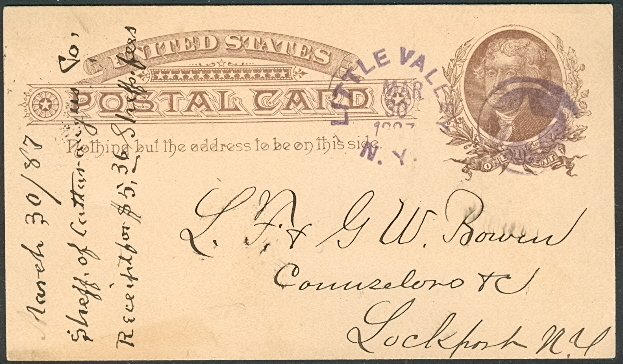 UNITED STATES
POSTAL CARD
Nothing but the address to be on this side.
ONE CENT
LITTLE VALLEY
MAR
30
1887
N. Y.
L. F. & G. W. Bowen
Counselors &c
Lockport N. Y.
March 30/87
Sheff. of Cattaraugus Co,
Receipt for $5,36 Sheffs fees